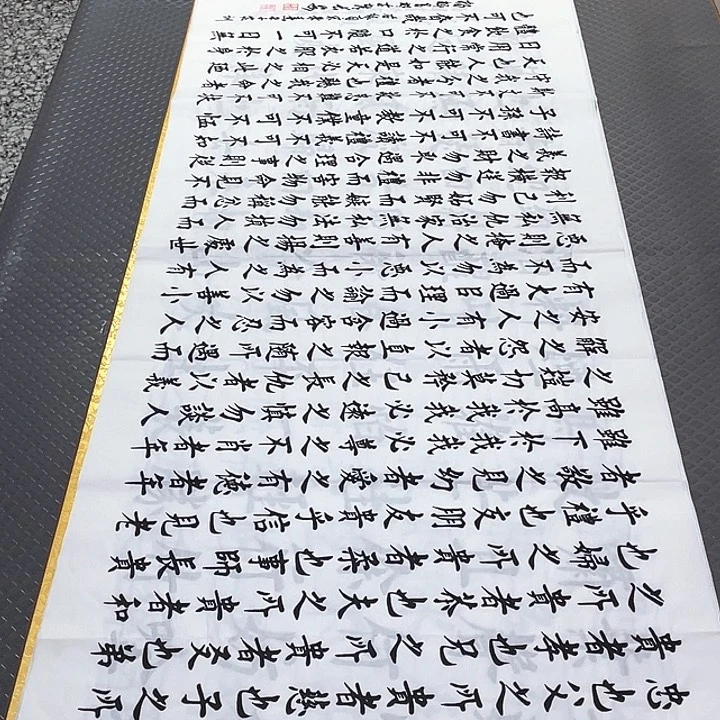 忠也父之所貴者慈也子之所
貴者孝也兄之所貴者友也弟
之所貴者恭也夫之所貴者和
也婦之所貴者柔也事師長貴
乎禮也交朋友貴乎信也見老
者敬之見幼者愛之有德者年
雖下於我我必尊之不肖者年
雖高於我我必遠之慎勿談人
之短切莫矜己之長仇者以義
解之怨者以直報之隨所遇而
安之人有小過含容而忍之人
有大過以理而諭之勿以善小
而不為勿以惡小而為之人有
惡則掩之人有善則揚之處世
無私仇治家無私法勿損人而
利己勿妒賢而嫉能勿稱忿而
報橫逆勿非禮而害物命見不
義之財勿取遇合理之事則從
詩書不可不讀禮義不可不知
子孫不可不教童僕不可不恤
斯文不可不敬患難不可不扶
守我之分者禮也聽我之命者
天也人能如是天必相之此乃
日用常行之道若衣服之於身
體飲食之於口腹不可一日無
也可不慎哉